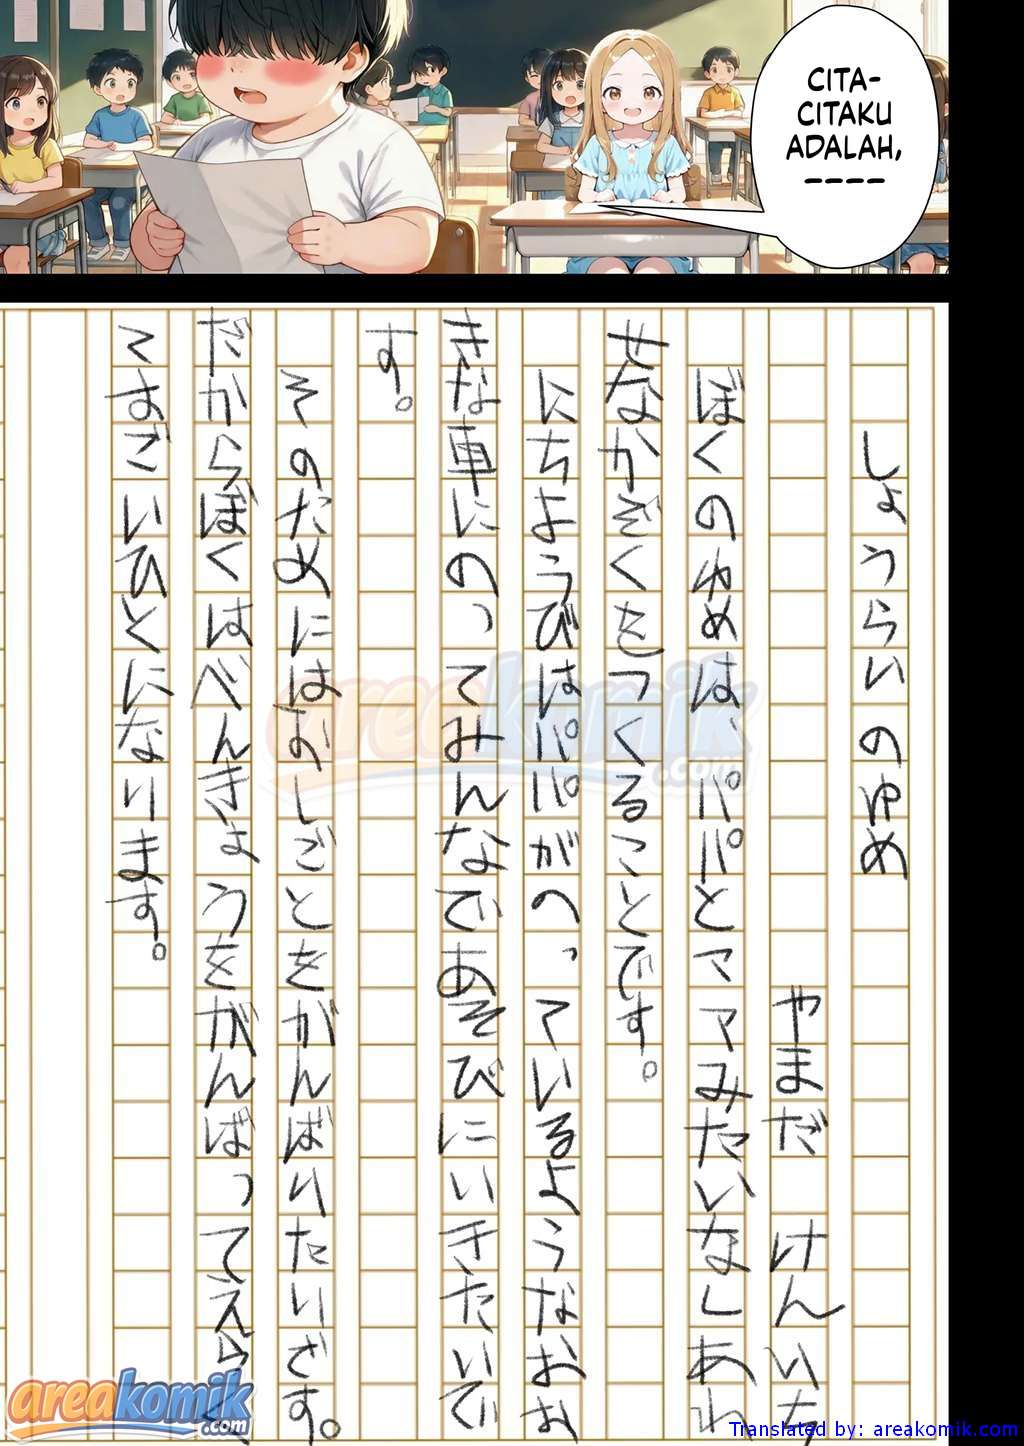 CITA-
CITAKU
ADALAH,
----
しょうらいのゆめ
やまだ けんいち
ぼくのゆめは、パパとママみたいなしあわ
せなかぞくをつくることです。
にちようびはパパがのっているようなおお
きな車にのってみんなであそびにいきたいで
す。
そのためにはおしごとをがんばりたいです。
だからぼくはべんきょうをがんばってえらく
てすごいひとになります。
areakomik
.com
areakomik
.com
Translated by: areakomik.com